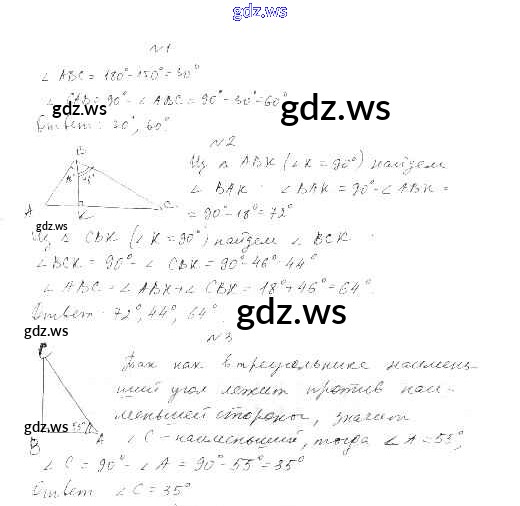 gdz.ws
№1
∠ABC = 180° - 150° = 30°
∠CAB = 90° - ∠ABC = 90° - 30° = 60°
gdz.ws
gdz.ws
Ответ: 30°, 60°.
№2
B
18° 46°
A K C
gdz.ws
Из Δ ABK (∠K = 90°) найдем
∠BAK. ∠BAK = 90° - ∠ABK =
= 90° - 18° = 72°
Из Δ CBK (∠K = 90°) найдем ∠BCK
∠BCK = 90° - ∠CBK = 90° - 46° = 44°
∠ABC = ∠ABK + ∠CBK = 18° + 46° = 64°.
Ответ: 72°, 44°, 64°.
gdz.ws
gdz.ws
№3
C
55°
B A
gdz.ws
Так как в треугольнике наимень-
ший угол лежит против наи-
меньшей стороны, значит
∠C - наименьший, тогда ∠A = 55°,
∠C = 90° - ∠A = 90° - 55° = 35°
Ответ ∠C = 35°
gdz.ws